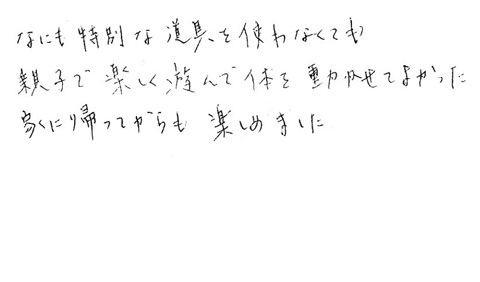 なにも特別な道具を使わなくても
親子で楽しく遊んで体を動かせてよかった
家に帰ってからも楽しめました